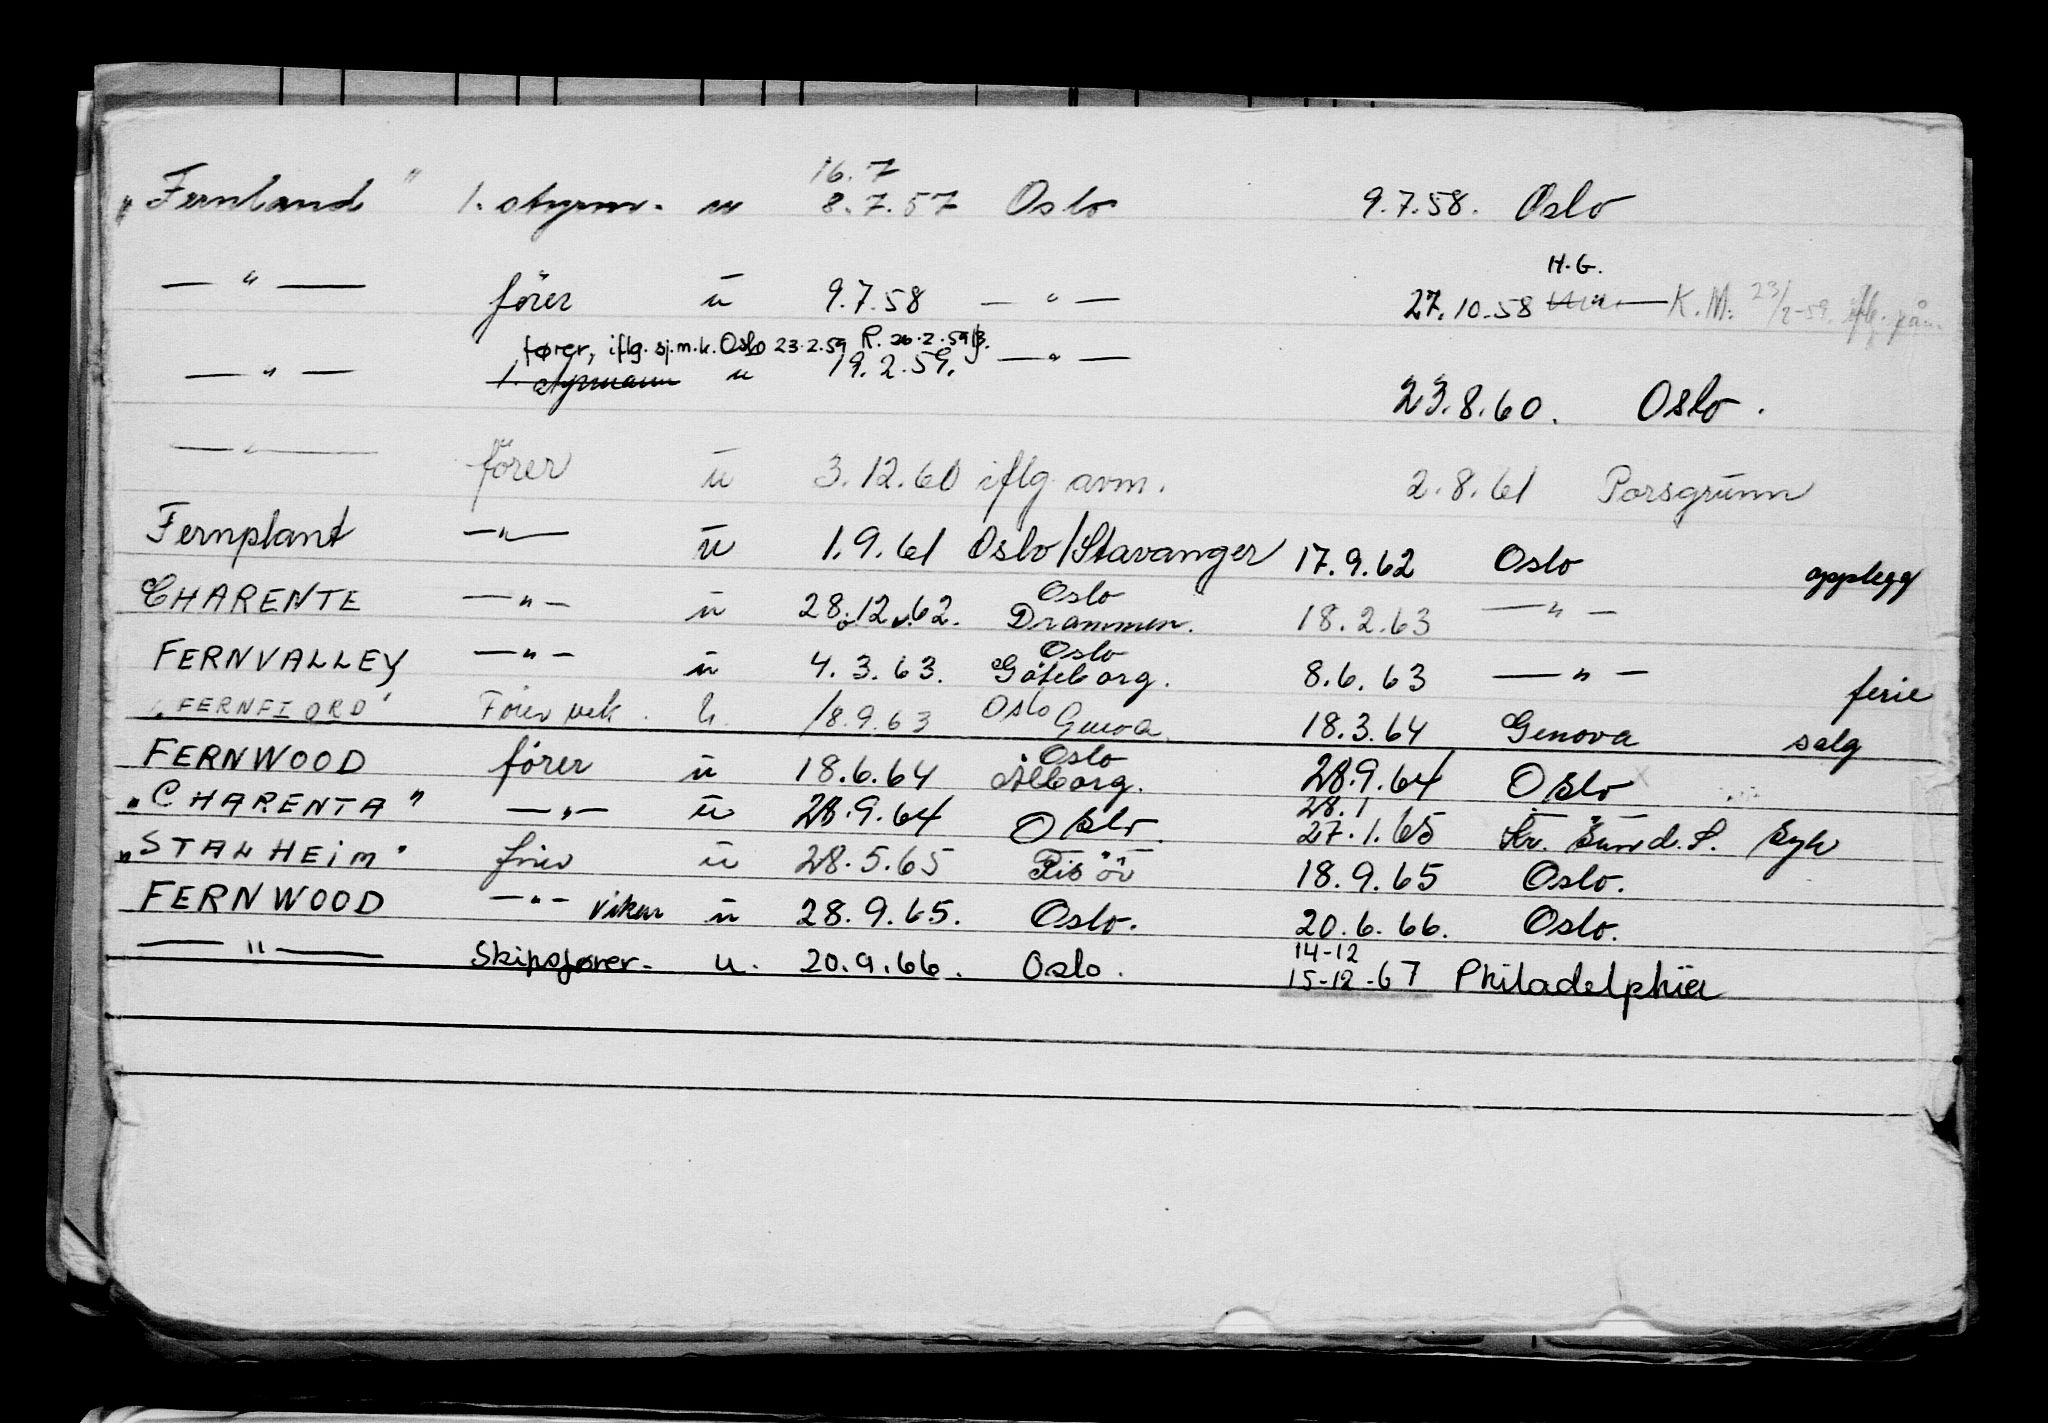 16.7
"Fernland" 1. styrm. u 8.7.57 Oslo 9.7.58. Oslo
H.G.
— " — fører u 9.7.58 — " — 27.10.58 — " — K.M. 23/2-59. iflg.
fører, iflg. sj.m.k. Oslo 23.2.59 R. 26.2.59
— " — 1. styrmann u 19.2.59. — " —
23.8.60. Oslo.
— " — förer u 3.12.60 iflg avm. 2.8.61 Porsgrunn
Fernplant — " — u 1.9.61 Oslo/Stavanger 17.9.62 Oslo opplegg
Oslo
CHARENTE — " — u 28.12.62. Drammen. 18.2.63 — " —
Oslo
FERNVALLEY — " — u 4.3.63. Göteborg. 8.6.63 — " — ferie
"FERNFIORD" Fører vik. u. 18.9.63 Oslo Genova 18.3.64 Genova salg
Oslo
FERNWOOD förer u 18.6.64 Ålborg. 28.9.64 Oslo
28.1
"CHARENTA" — " — u 28.9.64 Oslo 27.1.65 Kr. Sund. S. Syk
"STALHEIM" förer u 28.5.65 Risör 18.9.65 Oslo.
FERNWOOD — " — vikar u 28.9.65. Oslo. 20.6.66. Oslo.
14-12
— " — Skipsfører. u. 20.9.66. Oslo. 15-12-67 Philadelphia